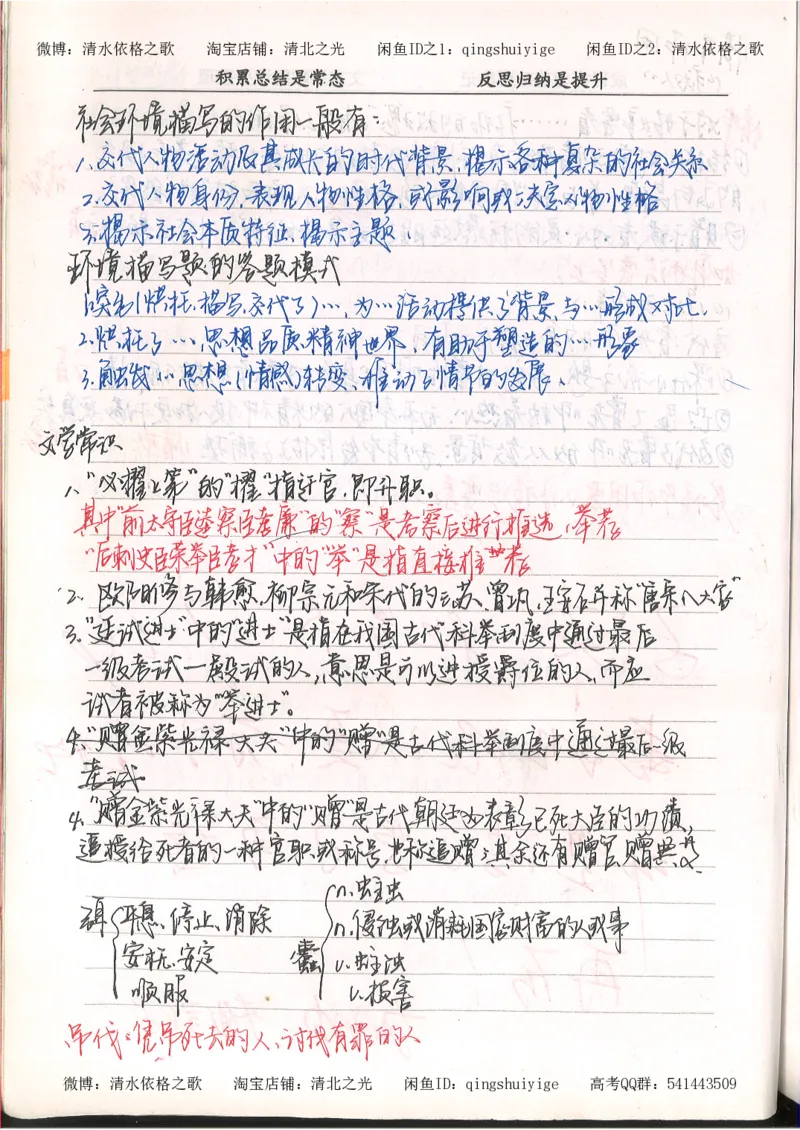 微博：清水依格之歌 淘宝店铺：清北之光 闲鱼ID之1：qingshuiyige 闲鱼ID之2：清水依格之歌
积累总结是常态 反思归纳是提升
社会环境描写的作用一般有：
1.交代人物活动及其成长的时代背景，揭示各种复杂的社会关系
2.交代人物身份，表现人物性格，或影响或决定人物性格
3.揭示社会本质特征，揭示主题
环境描写题的答题模式
1.突出(烘托、描写、交代了)…，为…活动提供了背景，与…形成对比.
2.烘托了…，思想品质、精神世界，有助于塑造的…形象
3.触发…思想(情感)转变，推动了情节的发展、
文学常识
1、"必擢上第"的"擢"指迁官，即升职。
其中"前太守臣逵察臣孝廉"的"察"是考察后进行推选、举荐
"后刺史臣荣举臣秀才"中的"举"是指直接推荐
2、欧阳修与韩愈，柳宗元和宋代的三苏、曾巩，王安石并称"唐宋八大家"
3."廷试进士"中的"进士"是指在我国古代科举制度中通过最后
一级考试—殿试的人，意思是可以进授爵位的人，而应
试者被称为"举进士"。
4."赠金紫光禄大夫"中的"赠"是古代科举制度中通过最后一级
考试
4、"赠金紫光禄大夫"中的"赠"是古代朝廷为表彰已死大臣的功绩，
追授给死者的一种官职或称号，也称追赠；其余还有赠官、赠典
弭 平息、停止、消除
安抚、安定
顺服
蠹 n.蛀虫
n.侵蚀或消耗国家财富的人或事
v.蛀蚀
v.损害
吊伐：凭吊死去的人，讨伐有罪的人
微博：清水依格之歌 淘宝店铺：清北之光 闲鱼ID：qingshuiyige 高考QQ群：541443509